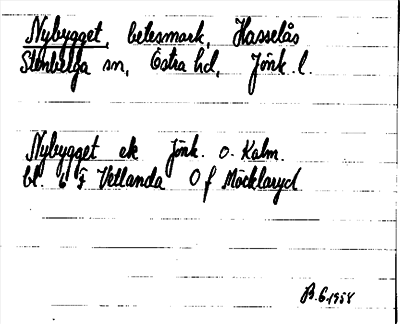 Nybygget, betesmark, Hasselås
Stenberga sn, Östra hd, Jönk. l.
Nybygget ek Jönk. o. Kalm.
bl. 6 F Vetlanda O f Möcklaryd
B.G 1958